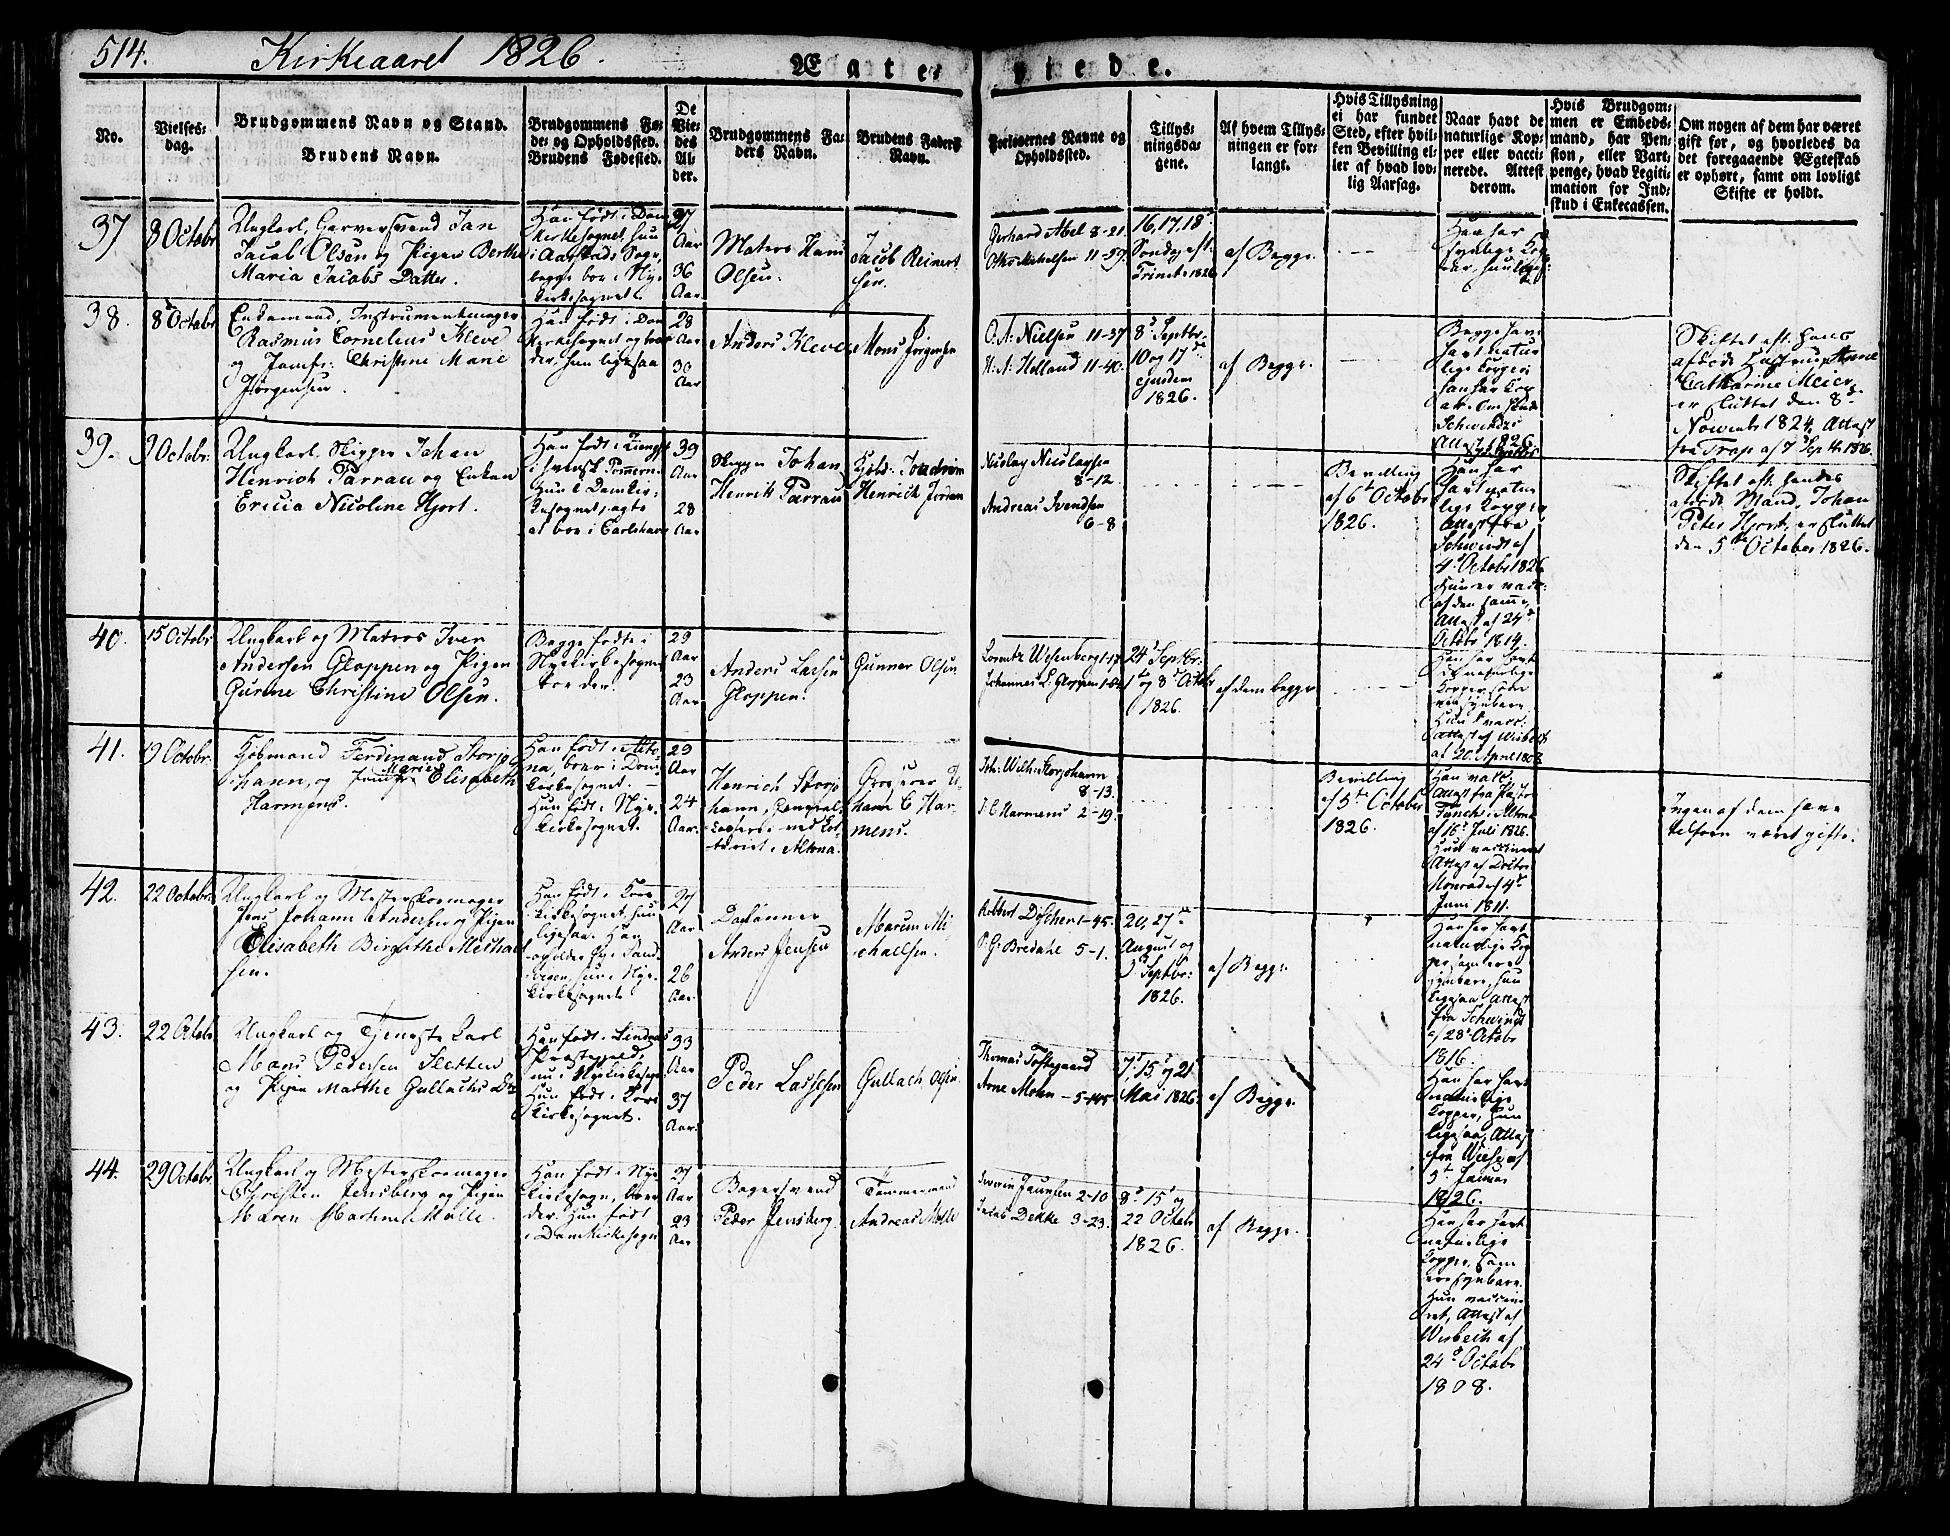 514. Kirkeaaret 1826.
Ægte- viede.
No.
Vielses-
dag.
Brudgommens Navn og Stand.
Brudens Navn.
Brudgommens Fø-
de- og Opholdssted.
Brudens Fødested.
De
Vie-
des
Al-
der.
Brudgommens Fa-
ders Navn.
Brudens Faders
Navn.
Forlovernes Navne og
Opholdssted.
Tillys-
ningsda-
gene.
Af hvem Tillys-
ningen er for-
langt.
Hvis Tillysning
ei har fundet
Sted, efter hvil-
ken Bevilling el-
ler af hvad lov-
lig Aarsag.
Naar havt de
naturlige Kop-
per eller vacci-
nerede. Attest
derom.
Hvis Brudgom-
men er Embeds-
mand, har Pen-
sion, eller Vart-
penge, hvad Legiti-
mation for Ind-
skud i Enkecassen.
Om nogen af dem har været
gift før, og hvorledes da
det foregaaende Ægteskab
er ophørt, samt om lovligt
Skifte er holdt.
37. 8 Octobr
Ungkarl, Garversvend Jan
Jacob Olsen og Pigen Berthe
Maria Jacobs Datter.
Han født i Dom
kirkesognet, hun
i Aarstads Sogn,
begge boe i Nye
kirkesognet.
Aar
36
Aar
Matros Hans
Olsen.
Jacob Reinert
sen.
Gerhard Abel 8-21.
Otto Michelsen 11-59.
16, 17, 18
Søndag eft.
Trinit. 1826
af Begge.
38. 8 Octobr
Enkemand, Instrumentmager
Rasmus Cornelius Kleve
og Jomfr: Christine Marie
Jørgensen.
Han født i Dom
kirkesognet og boer
der, hun ligesaa
28
Aar
30
Aar
Anders Kleve.
Mons Jørgensen
O. A. Nielsen 11-37
H. A. Helland 11-40.
8d Septbr.
10 og 17de
ejusdem
1826.
af Begge.
Begge have
havt natur
lige Kopper
Schwindts
Attest 1826.
Skiftet eft. hans
afdøde Hustrue Anne
Catharine Meier,
er sluttet den 8de
Novembr 1824, Attest
fra Trap af 7 Septbr 1826.
39. 9 Octobr:
Ungkarl, Skipper Johan
Henrich Parrau og Enken
Ericia Nicoline Hjort.
Han født i
i Svensk Pommern.
Hun i Domkir-
kesognet, agte
at boe i Carlshavn
39
Aar
28
Aar
Skipper Johan
Henrik Parrau
Henrich Jordan
Nicolay Nicolaysen
8-12.
Andreas Svendsen
6-8
Bevilling
af 6te Octobr
1826.
Han har
havt natur
lige Kopper
Attest fra
Schwindt af
4d Octobr 1826
Hun er vacc.
af den samme
Attest af 24de
Octobr 1814.
Skiftet eft. hendes
afdøde Mand, Johan
Peter Hjort, er sluttet
den 5te October 1826.
40. 15 Octobr
Ungkarl og Matros Iver
Andersen Gloppen og Pigen
Gurine Christine Olsen.
Begge fødte i
Nyekirkesognet
boe der.
29
Aar
23
Aar
Anders Larsen
Gloppen.
Gunner Olsen.
Lorentz Wesenberg 1-17
Johannes L. Gloppen
24d Septbr.
1d og 8d Octobr
1826.
af dem begge
Han har havt
de naturlige
Kopper, som
ere synbare.
Hun vacc.
Attest af Wisbech
af 20 April 1808
41. 19 Octobr.
Kjøbmand Ferdinand Storjo
hann, og Jomfru Marie Elisabeth
Harmens.
Han født i Alto
na, boer i Dom
kirkesognet. -
Hun født i Nye-
kirkesognet.
29
Aar
24
Aar.
Henrich Storjo
hann, General
i Altona.
Grosserer Jo-
hann C Har-
mens.
Joh: Wilh: Storjohann
8-13.
J. C. Harmens 2-19.
Bevilling
af 5te October
1826.
Han vacc.
Attest fra Pastor
Funch i Altona
af 16d Juli 1826.
Hun vaccineret
Attest af Doctor
Monrad af 4de
Juni 1811.
Ingen af dem have
tilforn været gifte.
42. 22 Octobr.
Ungkarl og Mester Skomager
Jens Johann Andersen og Pigen
Elisabeth Birgithe Michael
sen.
Han født i Kors
kirkesognet, hun
ligesaa. Han
opholder sig i Sand
vigen, hun i Nye-
kirkesognet
27
Aar
26
Aar.
Anders Jensen
Marcus Mi-
chaelsen.
Robbert Døscher 1-45.
P. G. Bredahl 5-1.
20, 27de
August og
3d Septbr:
1826.
af Begge
Han har havt
naturlige Kop
per som ere
synbare, hun
ligesaa, Attest
fra Schwindt
af 28d Octobr
1816.
43. 22 Octobr
Ungkarl og Tjeneste Karl
Mons Pedersen Sletten
og Pigen Marthe Gullachs Dtr
Han født i Lindaas
Præstegield,
nu i Nyekirkesogn
Hun født i Kors
kirkesognet.
33
Aar
37
Aar.
Peder Lassesen
Gullach Olsen.
Thomas Tostegaard
Arne Mohn - 5-145
7d, 15d og 21
Mai 1826.
af Begge.
Han har havt
naturlige
Kopper, hun
ligesaa, Attest
fra Wiese af
3d Januar
1826.
44. 29 Octobr
Ungkarl og Mester Skomager
Christen Jensberg og Pigen
Maren Martine Molle.
Han født i Nye
kirkesogn, boer
der. Hun født
i Domkirkesogn
27
Aar
23
Aar
Bagersvend
Peder Jensberg.
Tømmermand
Andreas Molle
Severin Jaunsen 2-10
Jacob Dekke 3-23.
8d 15d og
22 Octobr
1826.
af Begge.
Han har havt
naturlige
Kopper, som
ere synbare.
Hun vaccine
ret, Attest af
Wisbech af
24d Octobr
1808.